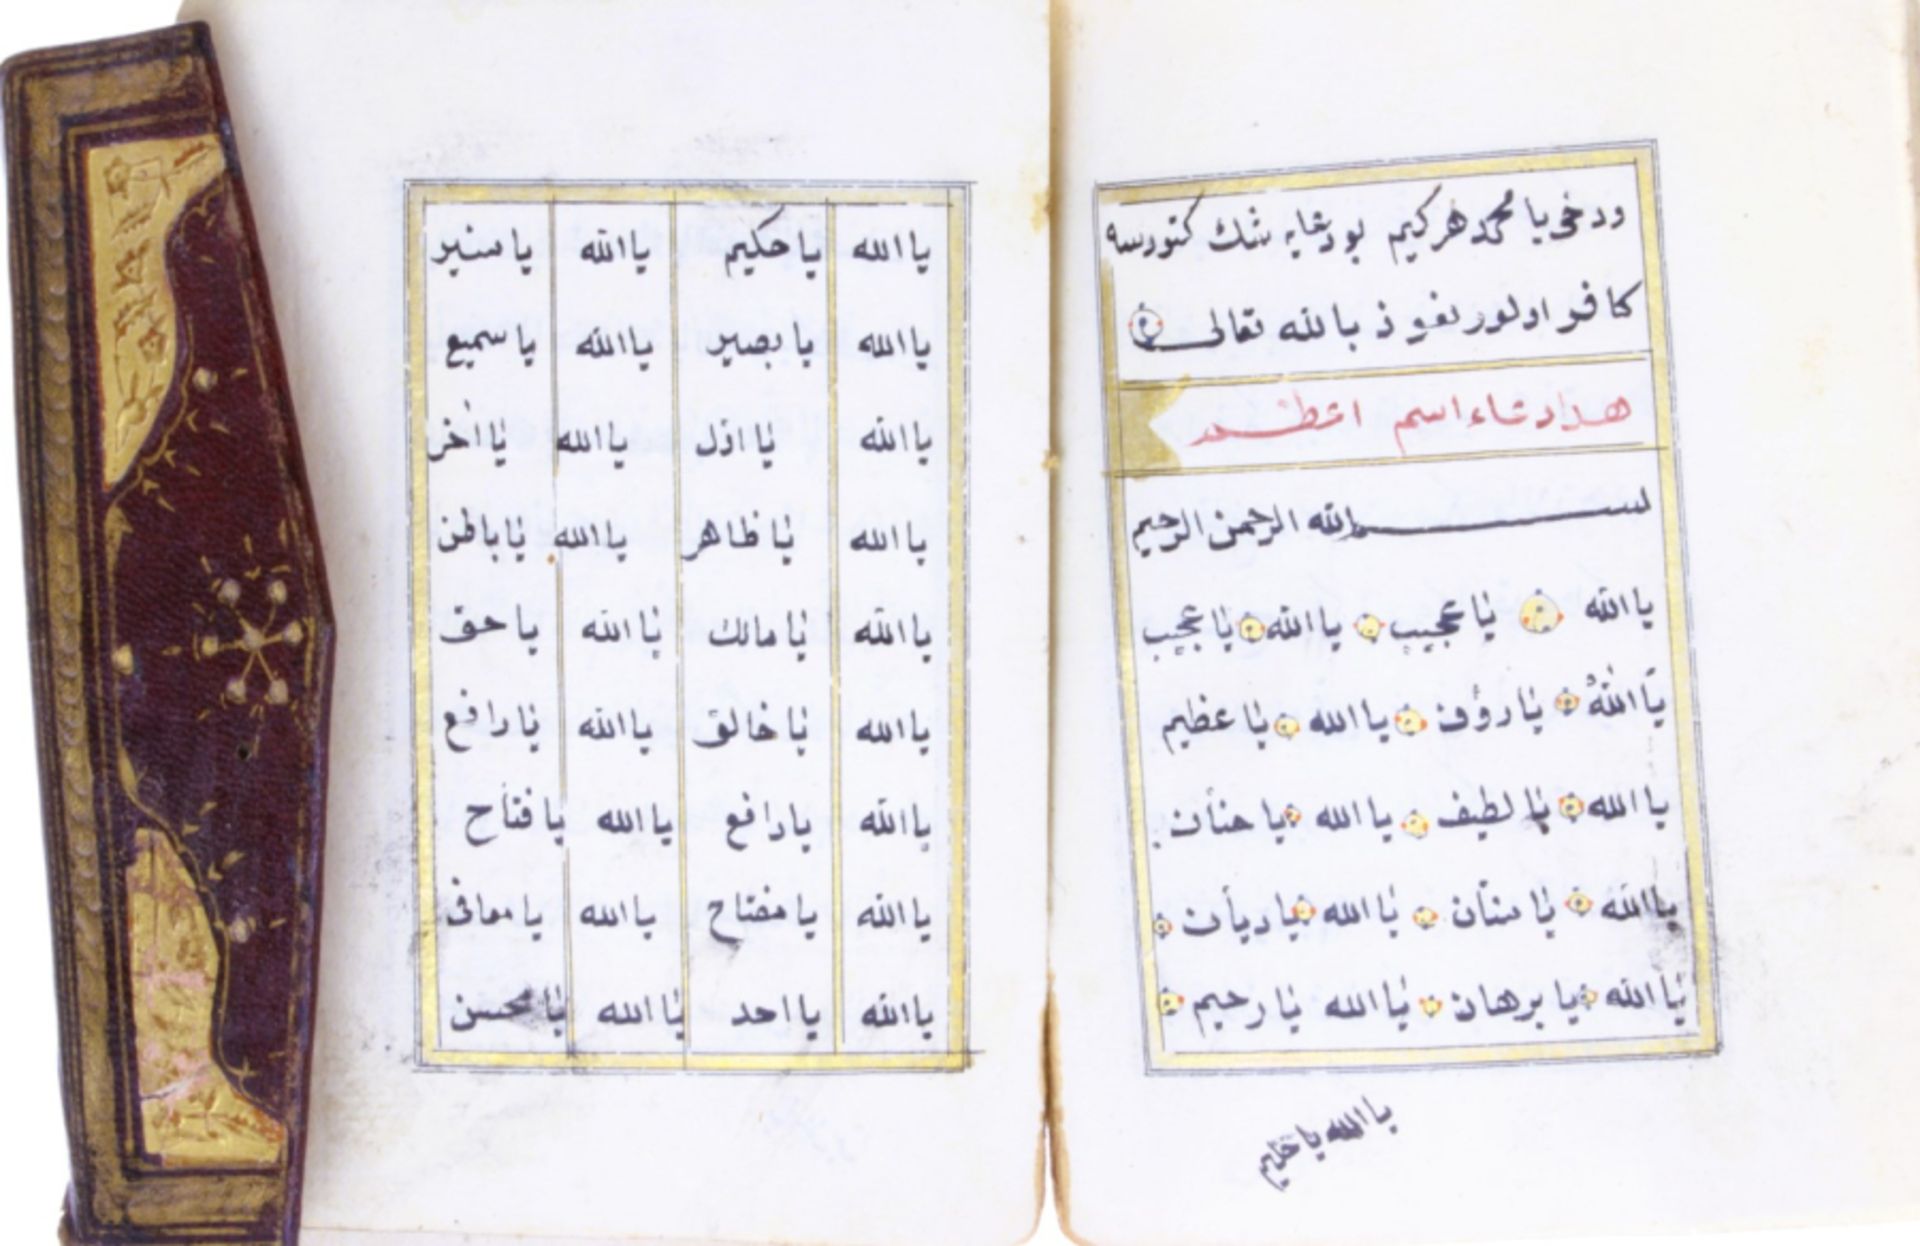 ودخى يا محمد هر كيم بو دعايه شك كتورسه
كافر اولور نعوذ بالله تعالى
هذا دعاء اسم اعظم
بسم الله الرحمن الرحيم
يا الله يا عجيب يا الله يا عجيب
يا اللهُ يا رؤف يا الله يا عظيم
يا الله يا لطيف يا الله يا حنان
يا الله يا منان يا الله يا ديان
يا الله يا برهان يا الله يا رحيم
يا الله يا حكيم
يا الله يا حكيم يا الله يا منير
يا الله يا بصير يا الله يا سميع
يا الله يا اول يا الله يا اخر
يا الله يا ظاهر يا الله يا باطن
يا الله يا مالك يا الله يا حق
يا الله يا خالق يا الله يا رافع
يا الله يا رافع يا الله يا فتاح
يا الله يا مفتاح يا الله يا معافى
يا الله يا احد يا الله يا محسن